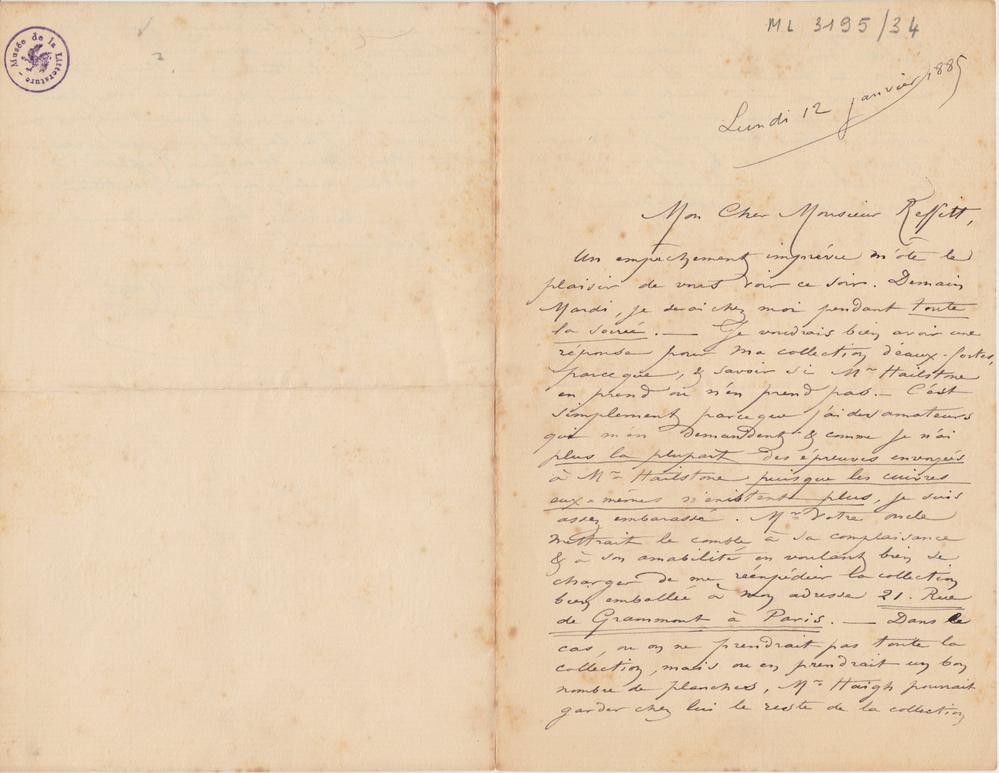 Musée de la Littérature
ML 3195/34
Lundi 12 janvier 1885
Mon Cher Monsieur
Un empechement imprévu m'ôte le
plaisir de vous voir ce soir. Demain
Mardi, je serai chez moi pendant toute
la soirée. — Je voudrais bien avoir une
réponse pour ma collection d'eaux-fortes,
parceque, & savoir si Mr Hailstone
en prend ou n'en prend pas. — C'est
simplement parceque j'ai des amateurs
qui m'en demandent & comme je n'ai
plus la plupart des épreuves envoyées
à Mr Hailstone puisque les cuivres
eux-mêmes n'existent plus, je suis
assez embarassé. Mr Votre oncle
mettrait le comble à sa complaisance
& à son amabilité en voulant bien se
charger de me réexpédier la collection
bien emballée à mon adresse 21. Rue
de Grammont à Paris. — Dans le
cas, ou on ne prendrait pas toute la
collection, mais ou en prendrait un bon
nombre de planches, Mr Haigh pourrait
garder chez lui le reste de la collection